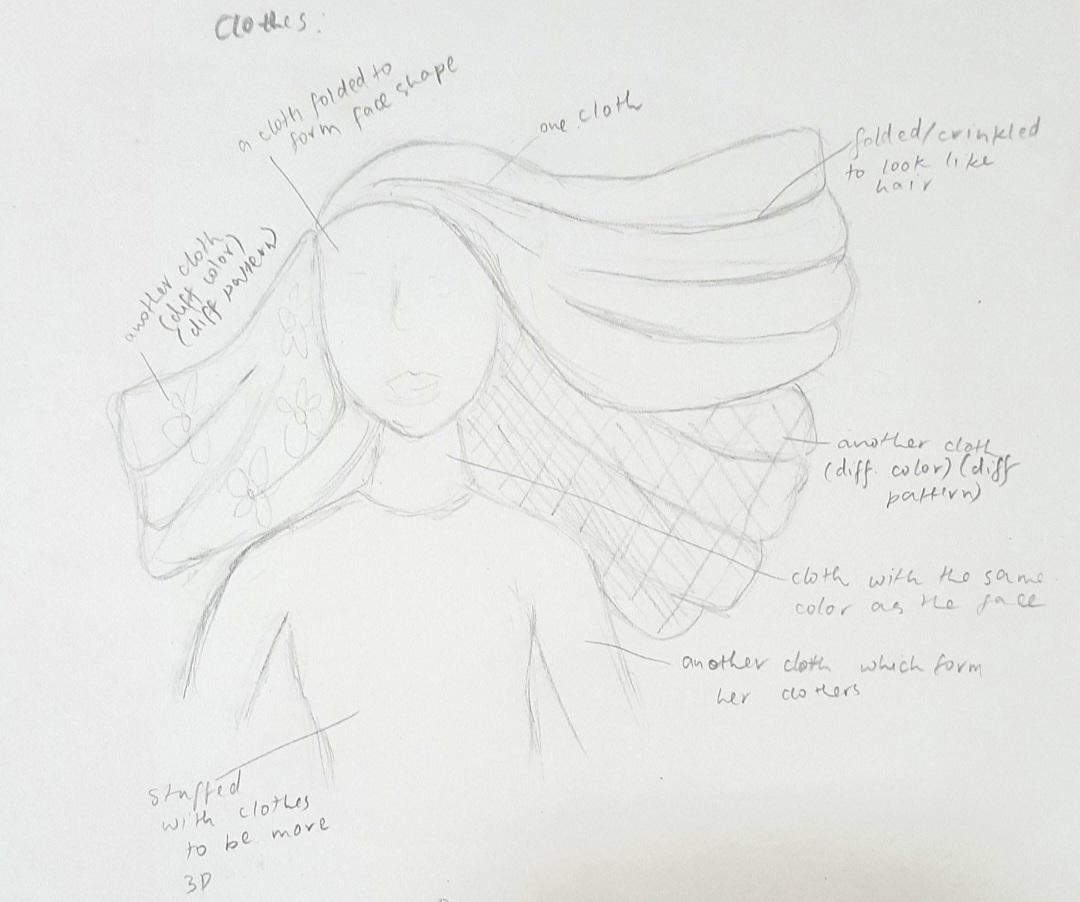 Clothes:
a cloth folded to
form face shape
one cloth
folded/crinkled
to look like
hair
another cloth
(diff color)
(diff pattern)
another cloth
(diff. color) (diff
pattern)
cloth with the same
color as the face
another cloth which form
her clothers
stuffed
with clothes
to be more
3D